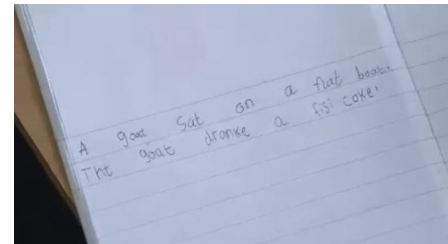 A goat Sat on a flat boat.
The goat dranke a fisi coke.